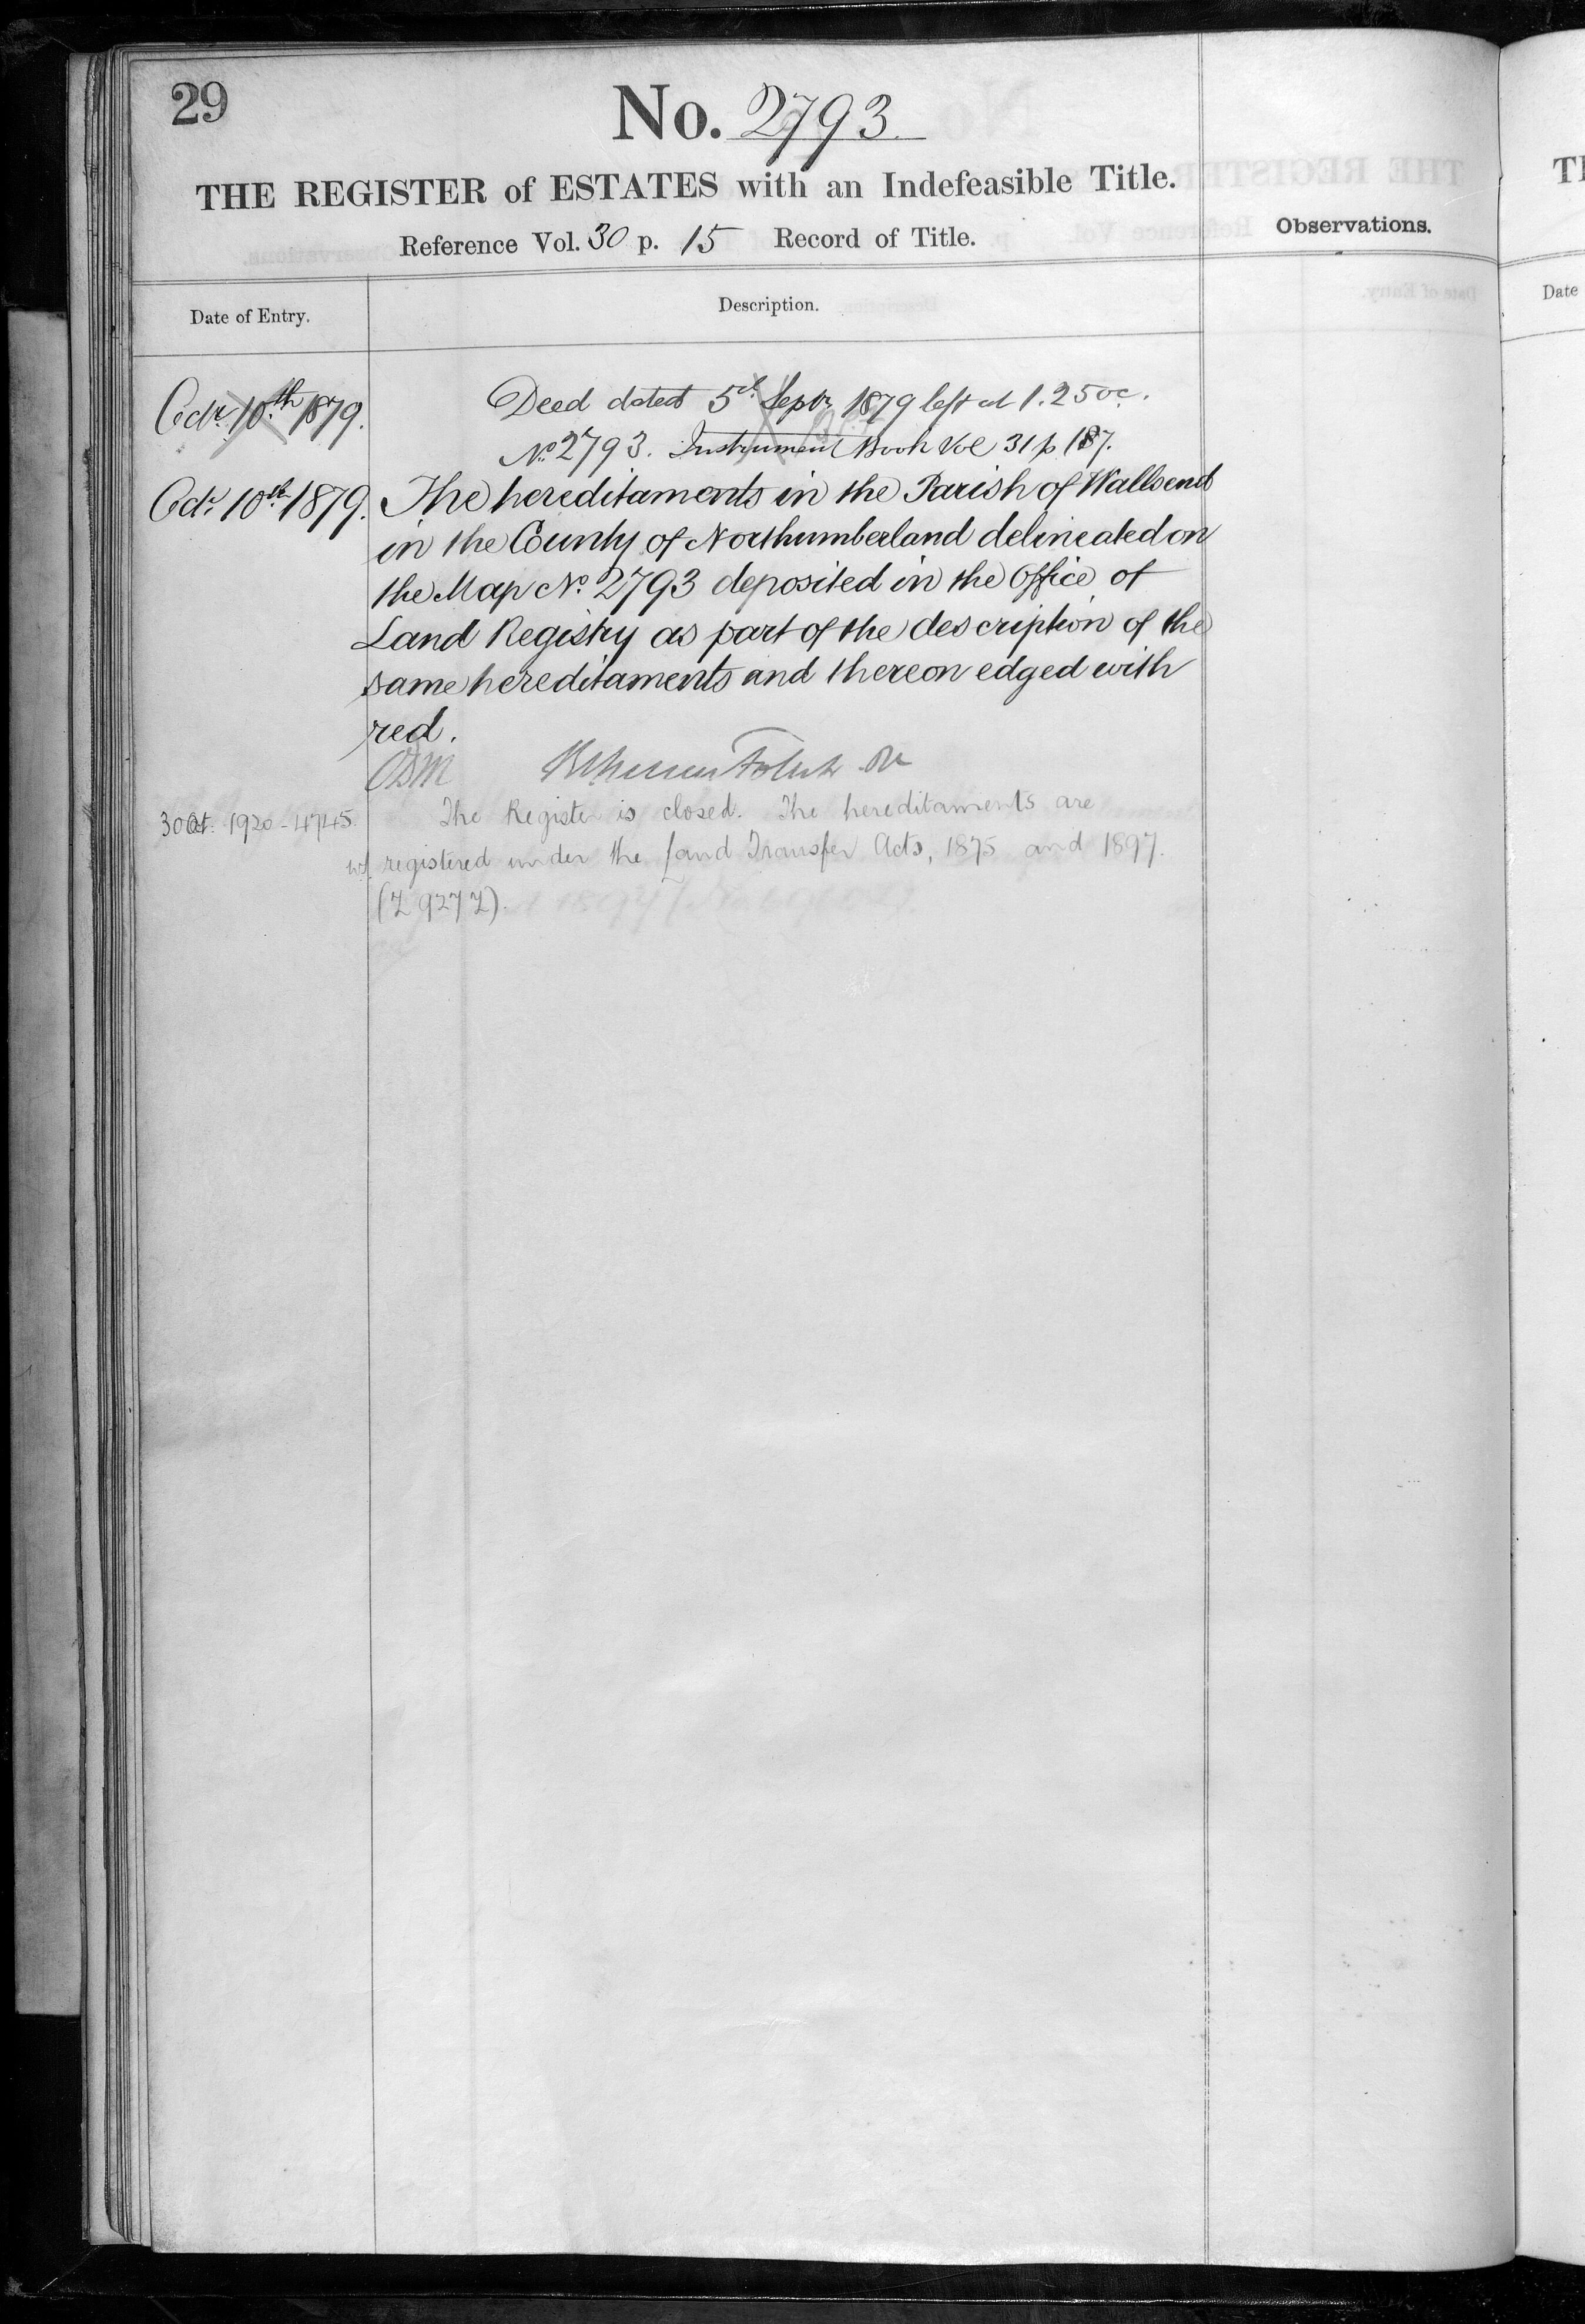 29
No. 2793
THE REGISTER of ESTATES with an Indefeasible Title.
Reference Vol. 30 p. 15 Record of Title.
Observations.
Date of Entry.
Description.
Octr 10th 1879.
Deed dated 5th Septr 1879 left at 1.25 oc.
No. 2793. Instrument Book Vol 31 p 187.
Octr 10th 1879. The hereditaments in the Parish of Wallsend
in the County of Northumberland delineated on
the Map No. 2793 deposited in the Office of
Land Registry as part of the description of the
same hereditaments and thereon edged with
red.
30 Oct. 1920 - 4745 The Register is closed. The hereditaments are
registered under the Land Transfer Acts, 1875 and 1897.
(Z 927 Z).
Date